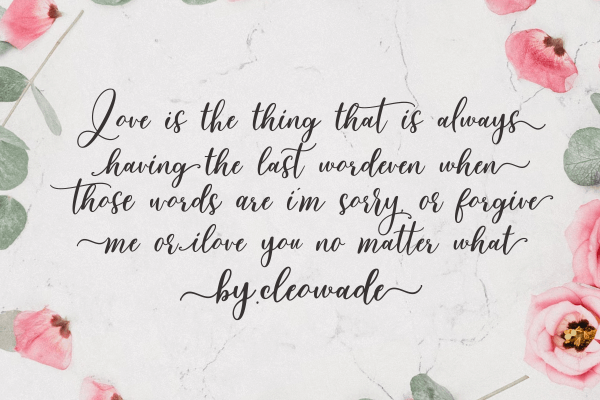 Love is the thing that is always
having the last wordeven when
those words are i'm sorry or forgive
me or ilove you no matter what
by.cleowade